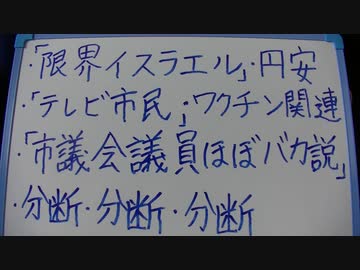 ・「限界イスラエル」・円安
・「テレビ市民」・ワクチン関連
・「市議会議員ほぼバカ説」
・分断・分断・分断